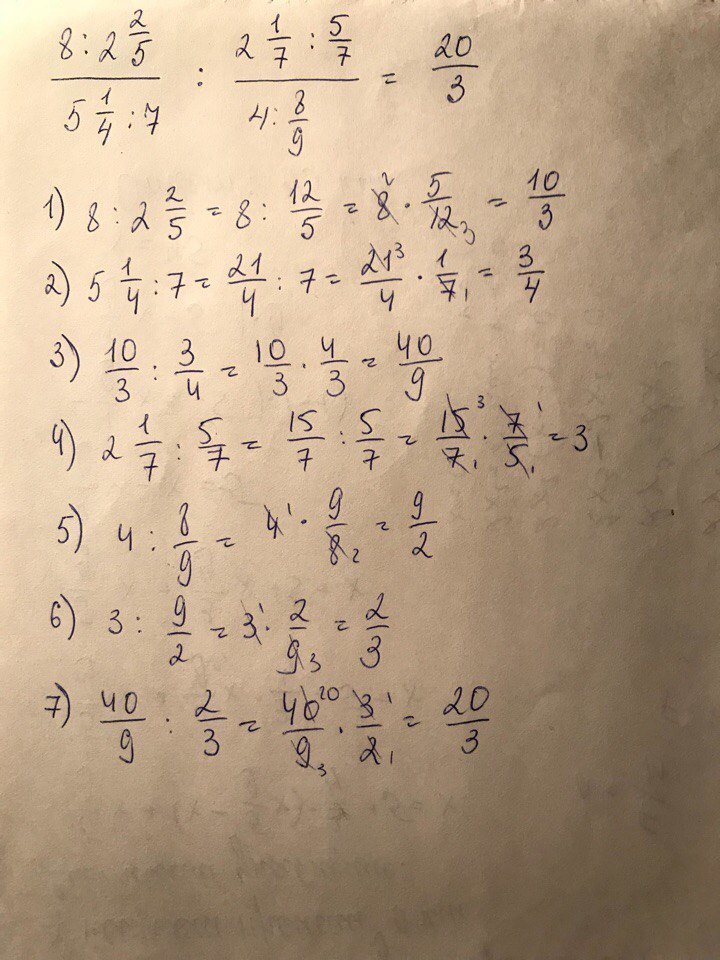 8 : 2 2/5 / 5 1/4 : 7 : 2 1/7 : 5/7 / 4 : 8/9 = 20/3
1) 8 : 2 2/5 = 8 : 12/5 = 8 2 · 5/12 3 = 10/3
2) 5 1/4 : 7 = 21/4 : 7 = 21 3/4 · 1/7 1 = 3/4
3) 10/3 : 3/4 = 10/3 · 4/3 = 40/9
4) 2 1/7 : 5/7 = 15/7 : 5/7 = 15 3/7 1 · 7 1/5 1 = 3
5) 4 : 8/9 = 4 1 · 9/8 2 = 9/2
6) 3 : 9/2 = 3 1 · 2/9 3 = 2/3
7) 40/9 : 2/3 = 40 20/9 3 · 3 1/2 1 = 20/3